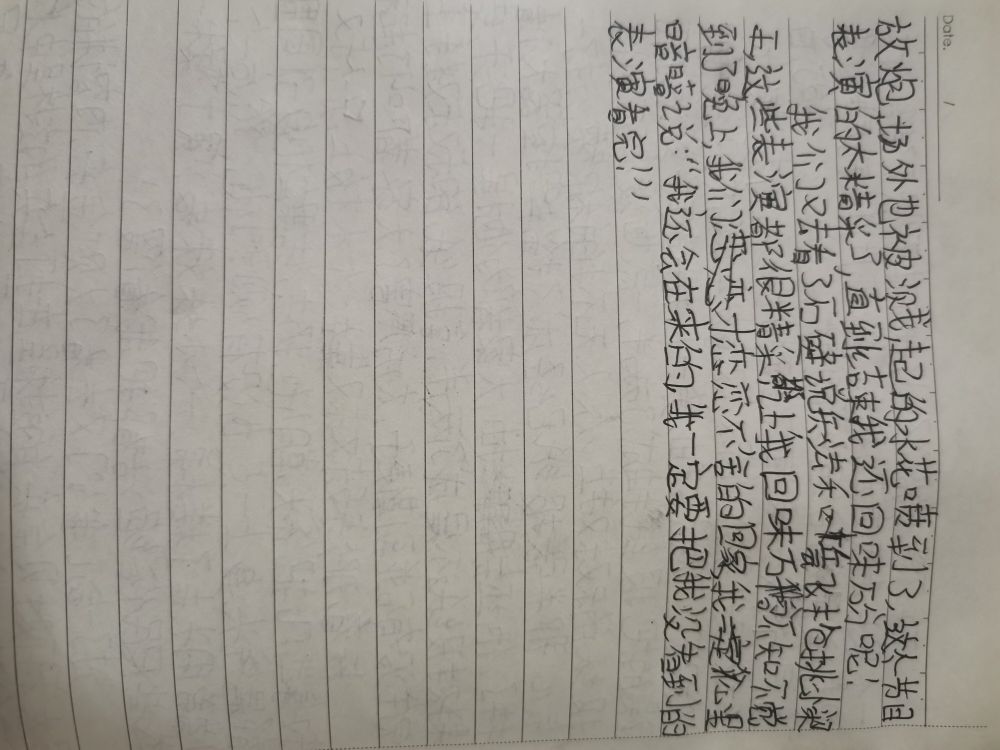 Date. /
放炮,场外也被溅起的水花喷到了,这个节目
表演的太精采了,直到结束我还回味无穷呢!
我们又去看了石磙说乐法和岳飞枪挑小梁
王,这些表演都很精采,让我回味无穷不知不觉
到了晚上,我们恋恋不舍的回家,我一定心里
暗暗说:“我还会在来的,我一定要把我没看到的
表演看完!”